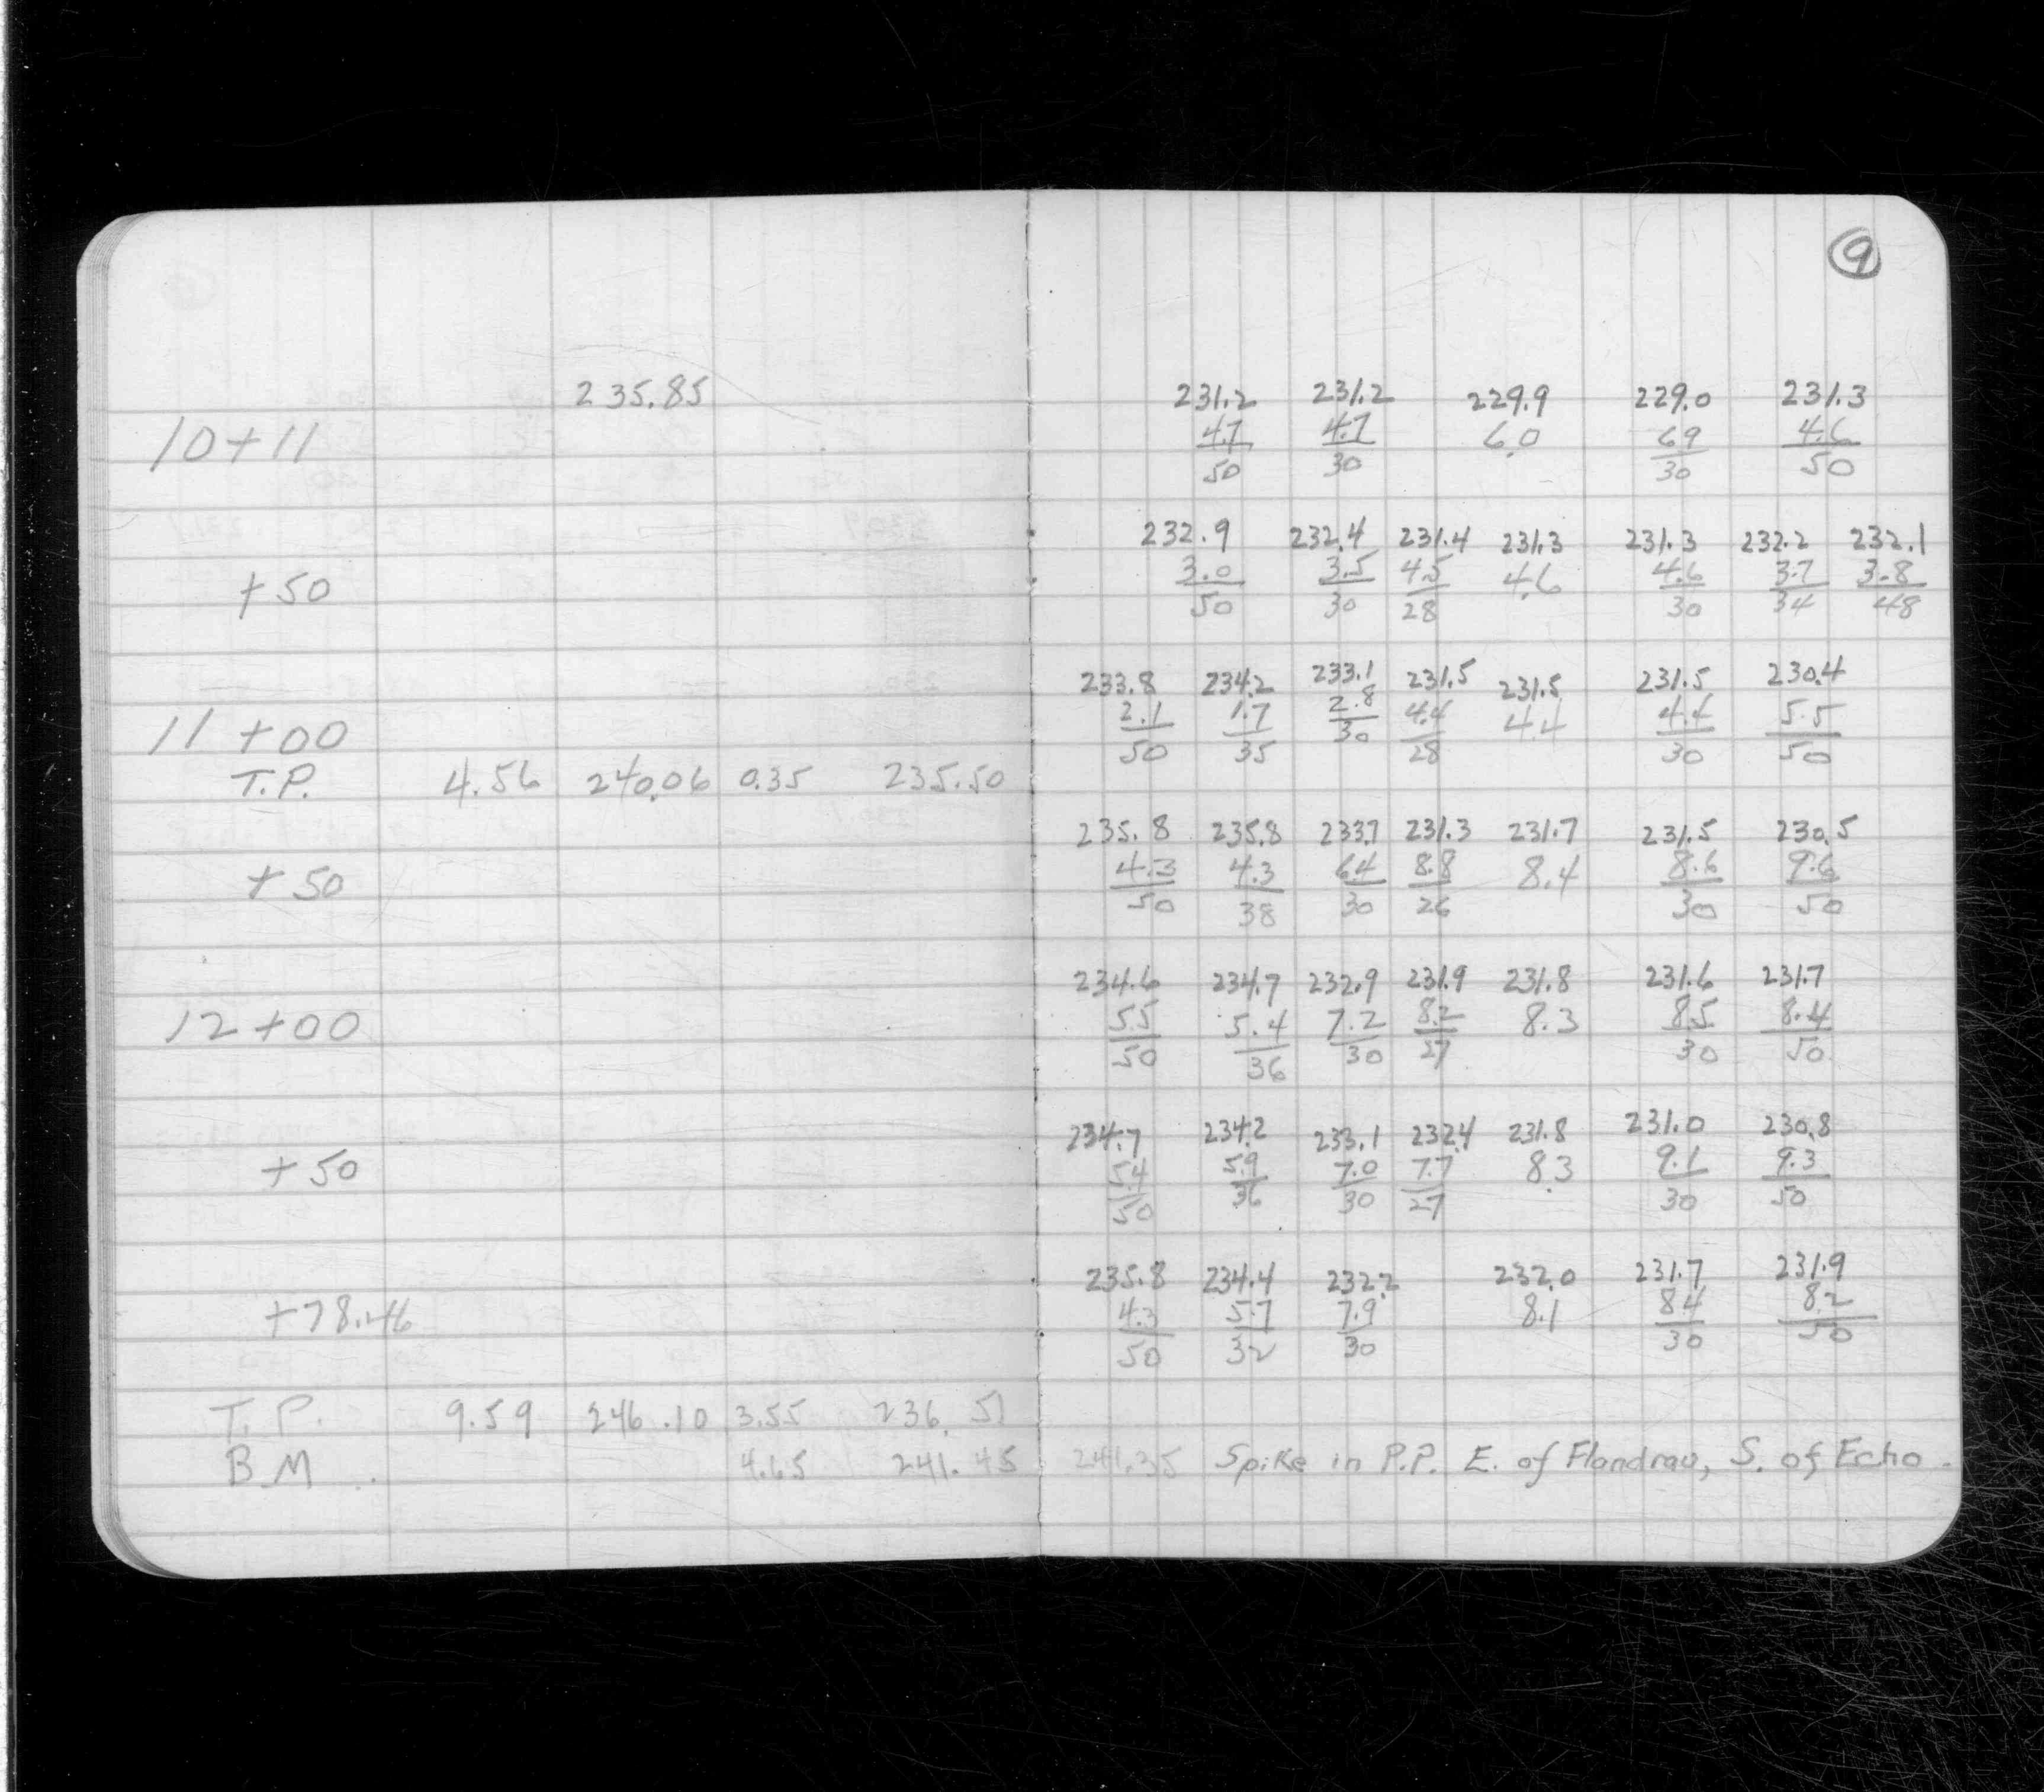 9
235.85 231.2 231.2 229.9 229.0 231.3
10+11 4.7 4.7 6.0 6.9 4.6
50 30 30 50
232.9 232.4 231.4 231.3 231.3 232.2 232.1
+50 3.0 3.5 4.5 4.6 4.6 3.7 3.8
50 30 28 30 34 48
233.8 234.2 233.1 231.5 231.5 231.5 230.4
11+00 2.1 1.7 2.8 4.4 4.4 4.4 5.5
50 35 30 28 30 50
T.P. 4.56 240.06 0.35 235.50
235.8 235.8 233.7 231.3 231.7 231.5 230.5
+50 4.3 4.3 6.4 8.8 8.4 8.6 9.6
50 38 30 26 30 50
234.6 234.7 232.9 231.9 231.8 231.6 231.7
12+00 5.5 5.4 7.2 8.2 8.3 8.5 8.4
50 36 30 27 30 50
234.7 234.2 233.1 232.4 231.8 231.0 230.8
+50 5.4 5.9 7.0 7.7 8.3 9.1 9.3
50 36 30 27 30 50
235.8 234.4 232.2 232.0 231.7 231.9
+78.46 4.3 5.7 7.9 8.1 8.4 8.2
50 32 30 30 50
T.P. 9.59 246.10 3.55 236.51
B.M. 4.65 241.45 241.35 Spike in P.P. E. of Flandrau, S. of Echo.